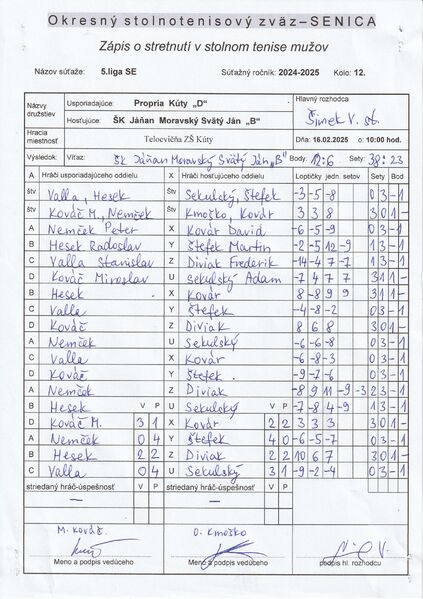 Okresný stolnotenisový zväz–SENICA
Zápis o stretnutí v stolnom tenise mužov
Názov súťaže: 5.liga SE Súťažný ročník: 2024-2025 Kolo: 12.
Názvy družstiev Usporiadajúce: Propria Kúty „D" Hlavný rozhodca
Hosťujúce: ŠK Jáňan Moravský Svätý Ján „B" Šimek V. st.
Hracia miestnosť Telocvičňa ZŠ Kúty Dňa: 16.02.2025 o: 10:00 hod.
Výsledok: Víťaz: ŠK Jáňan Moravský Svätý Ján „B" Body: 12:6 Sety: 38:23
A Hráči usporiadajúceho oddielu X Hráči hosťujúceho oddielu Loptičky jedn. setov Sety Bod
štv Valla, Hesek Štv Sekulský, Štefek -3 -5 -8 0 3 -1
štv Kováč M., Nemček Štv Kmoško, Kovár 3 3 8 3 0 1-
A Nemček Peter X Kovár David -6 -5 -9 0 3 -1
B Hesek Radoslav Y Štefek Martin -2 -5 12 -9 1 3 -1
C Valla Stanislav Z Diviak Frederik -14 -4 7 -7 1 3 -1
D Kováč Miroslav U Sekulský Adam -7 4 7 7 3 1 1-
B Hesek X Kovár 8 -8 9 9 3 1 1-
C Valla Y Štefek -4 -8 -2 0 3 -1
D Kováč Z Diviak 8 6 8 3 0 1-
A Nemček U Sekulský -6 -6 -8 0 3 -1
C Valla X Kovár -6 -8 -3 0 3 -1
D Kováč Y Štefek -9 -7 -6 0 3 -1
A Nemček Z Diviak -8 9 11 -9 -3 2 3 -1
B Hesek V P U Sekulský V P -7 -8 4 -9 1 3 -1
D Kováč M. 3 1 X Kovár 2 2 3 3 3 3 0 1-
A Nemček 0 4 Y Štefek 4 0 -6 -5 -7 0 3 -1
B Hesek 2 2 Z Diviak 2 2 10 6 7 3 0 1-
C Valla 0 4 U Sekulský 3 1 -9 -2 -4 0 3 -1
striedaný hráč-úspešnosť V P striedaný hráč-úspešnosť V P
— —
M. Kováč O. Kmoško
Meno a podpis vedúceho Meno a podpis vedúceho podpis hl. rozhodcu